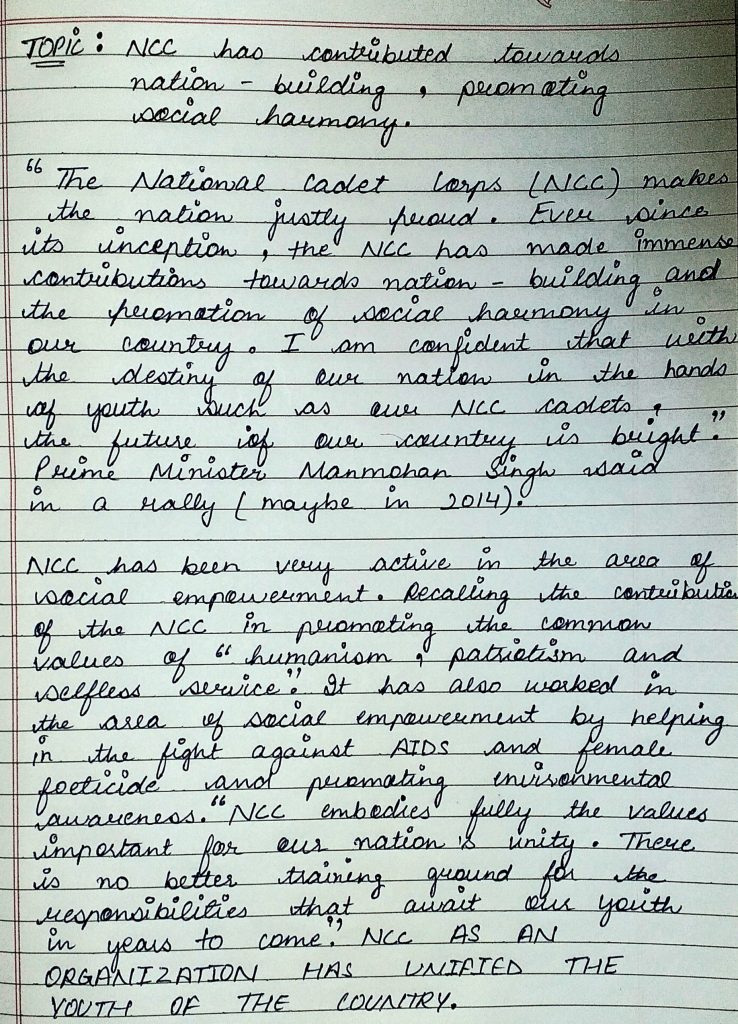 TOPIC : NCC has contributed towards
nation - building , promoting
social harmony.
“ The National Cadet Corps (NCC) makes
the nation justly proud. Ever since
its inception, the NCC has made immense
contributions towards nation - building and
the promotion of social harmony in
our country. I am confident that with
the destiny of our nation in the hands
of youth such as our NCC cadets,
the future of our country is bright.”
Prime Minister Manmohan Singh said
in a rally ( maybe in 2014).
NCC has been very active in the area of
social empowerment. Recalling the contributio
of the NCC in promoting the common
values of “ humanism , patriotism and
selfless service”. It has also worked in
the area of social empowerment by helping
in the fight against AIDS and female
foeticide and promoting environmental
awareness. “NCC embodies fully the values
important for our nation's unity. There
is no better training ground for the
responsibilities that await our youth
in years to come”. NCC AS AN
ORGANIZATION HAS UNIFIED THE
YOUTH OF THE COUNTRY.